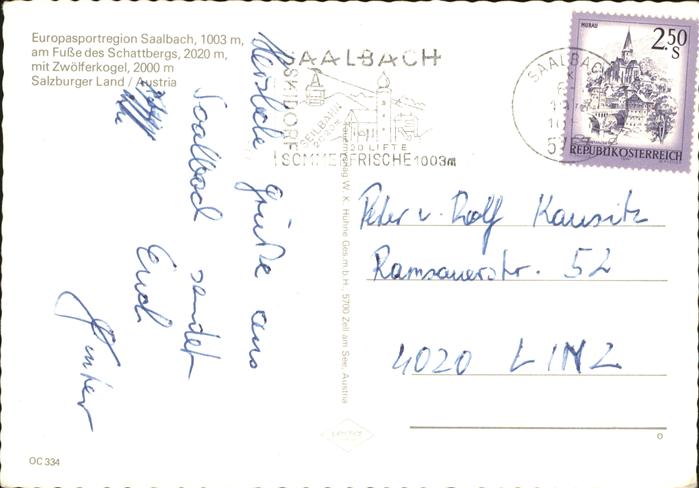 Europasportregion Saalbach, 1003 m,
am Fuße des Schattbergs, 2020 m,
mit Zwölferkogel, 2000 m
Salzburger Land / Austria
SAALBACH
SKIDORF
SEILBAHN
2020m
20 LIFTE
SOMMERFRISCHE 1003m
SAALBACH
MURAU
2.50
S
REPUBLIK ÖSTERREICH
Herzliche Grüße aus
Saalbach sendet
Euch
Günther
W. K. Huhne Ges.m.b.H., 5700 Zell am See, Austria
Peter u. Rolf Kausitz
Ramsauerstr. 52
4020 LINZ
OC 334